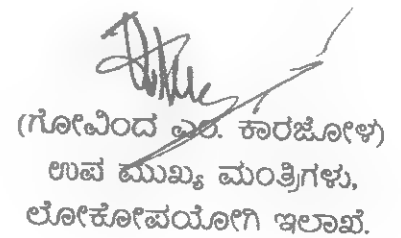 (ಗೋವಿಂದ ಎಂ. ಕಾರಜೋಳ)
ಉಪ ಮುಖ್ಯ ಮಂತ್ರಿಗಳು,
ಲೋಕೋಪಯೋಗಿ ಇಲಾಖೆ.